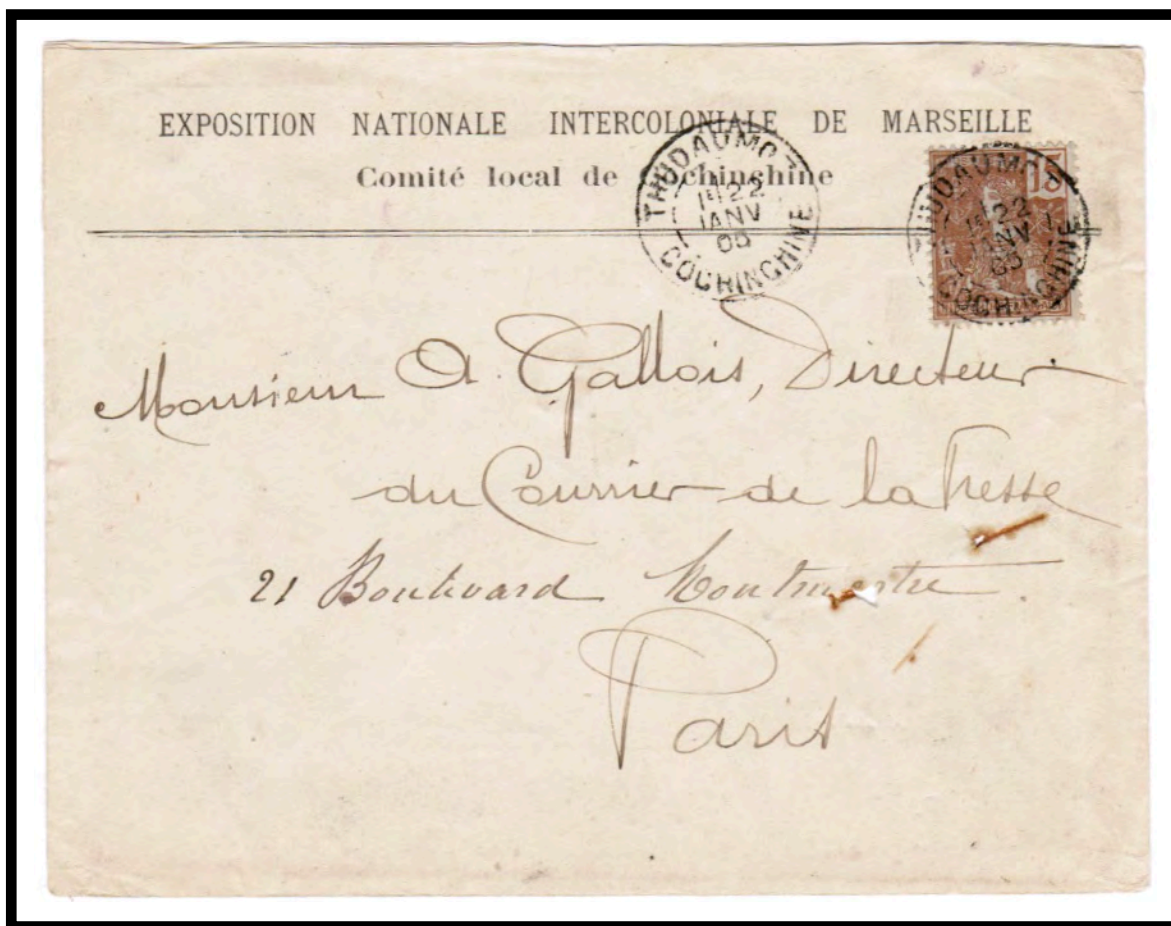 EXPOSITION NATIONALE INTERCOLONIALE DE MARSEILLE
Comité local de Cochinchine
THUDAUMOT
22
JANV
05
COCHINCHINE
15
THUDAUMOT
22
JANV
05
COCHINCHINE
Monsieur A. Gallois, Directeur
du Courrier de la Presse
21 Boulevard Montmartre.
Paris